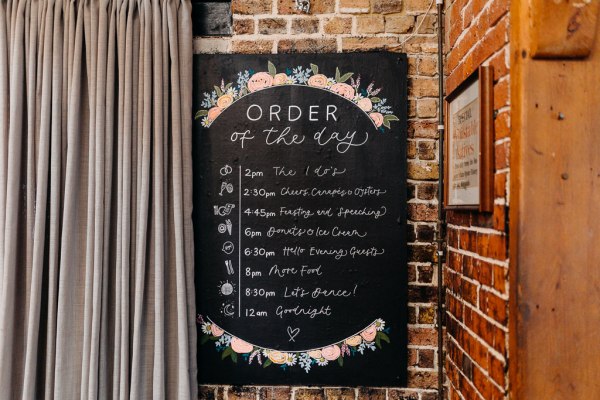 ORDER
of the day
2pm The I do's
2:30pm Cheers, Canapés & Oysters
4:45pm Feasting and Speeching
6pm Donuts & Ice Cream
6:30pm Hello Evening Guests
8pm More Food
8:30pm Let's Dance!
12am Goodnight